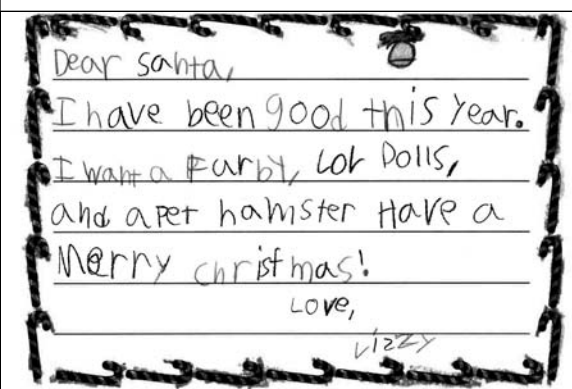 Dear santa,
I have been good this year.
I want a Furby, LoL Dolls,
and a pet hamster Have a
Merry christmas!
Love,
Lizzy